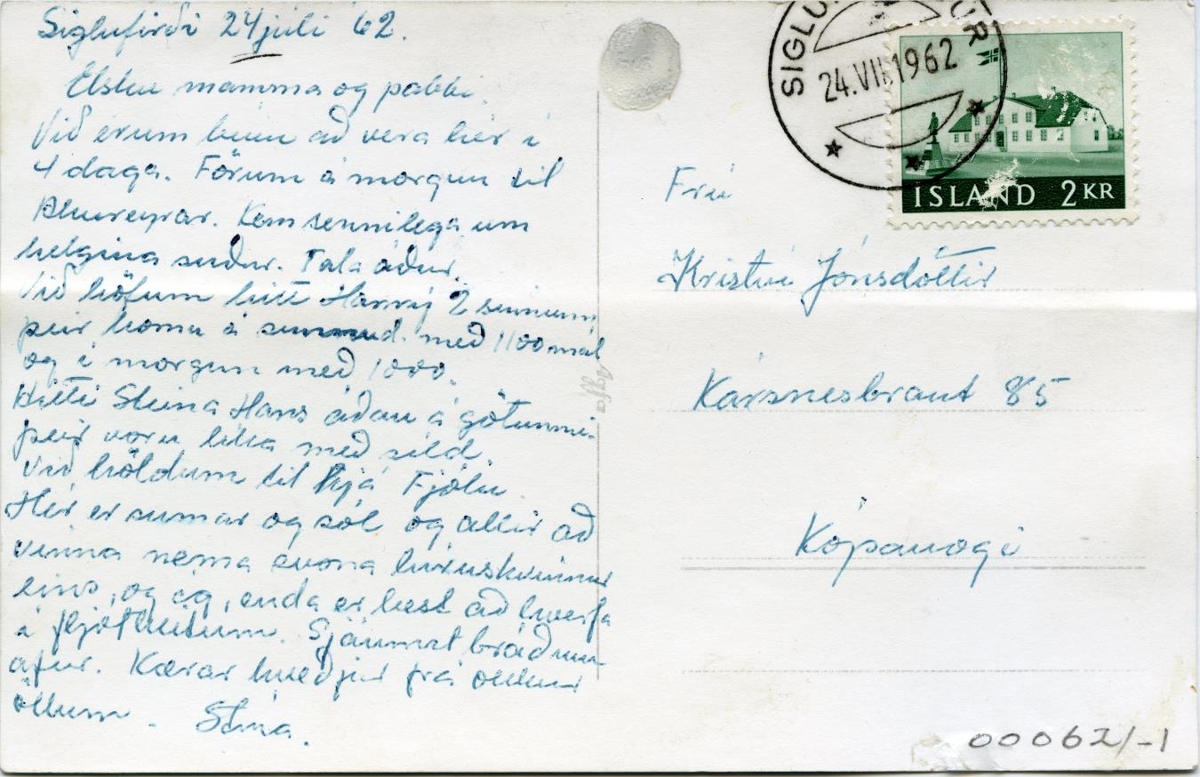 Siglufirði 24 júlí '62.
Elsku mamma og pabbi.
Við erum búin að vera hér í
4 daga. Förum á morgun til
Akureyrar. Kem sennilega um
helgina suður. Tala áður.
Við höfum hitt Harrý 2 sinnum
þeir komu á sunnud. með 1100 mál
og í morgun með 1000.
Hitti Steina Hans áðan á götunni.
þeir voru líka með síld.
Við höldum til hjá Fjólu.
Hér er sumar og sól og allir að
vinna nema svona lúxuskvinnur
eins og ég, enda er best að hverfa
í fljótheitum. Sjáumst bráðum
aftur. Kærar kveðjur frá okkur
öllum. Stína.
SIGLUFJÖRÐUR
24.VII.1962
ÍSLAND 2 KR
Frú
Kristín Jónsdóttir
Kársnesbraut 85
Kópavogi
Agfa
00062/-1